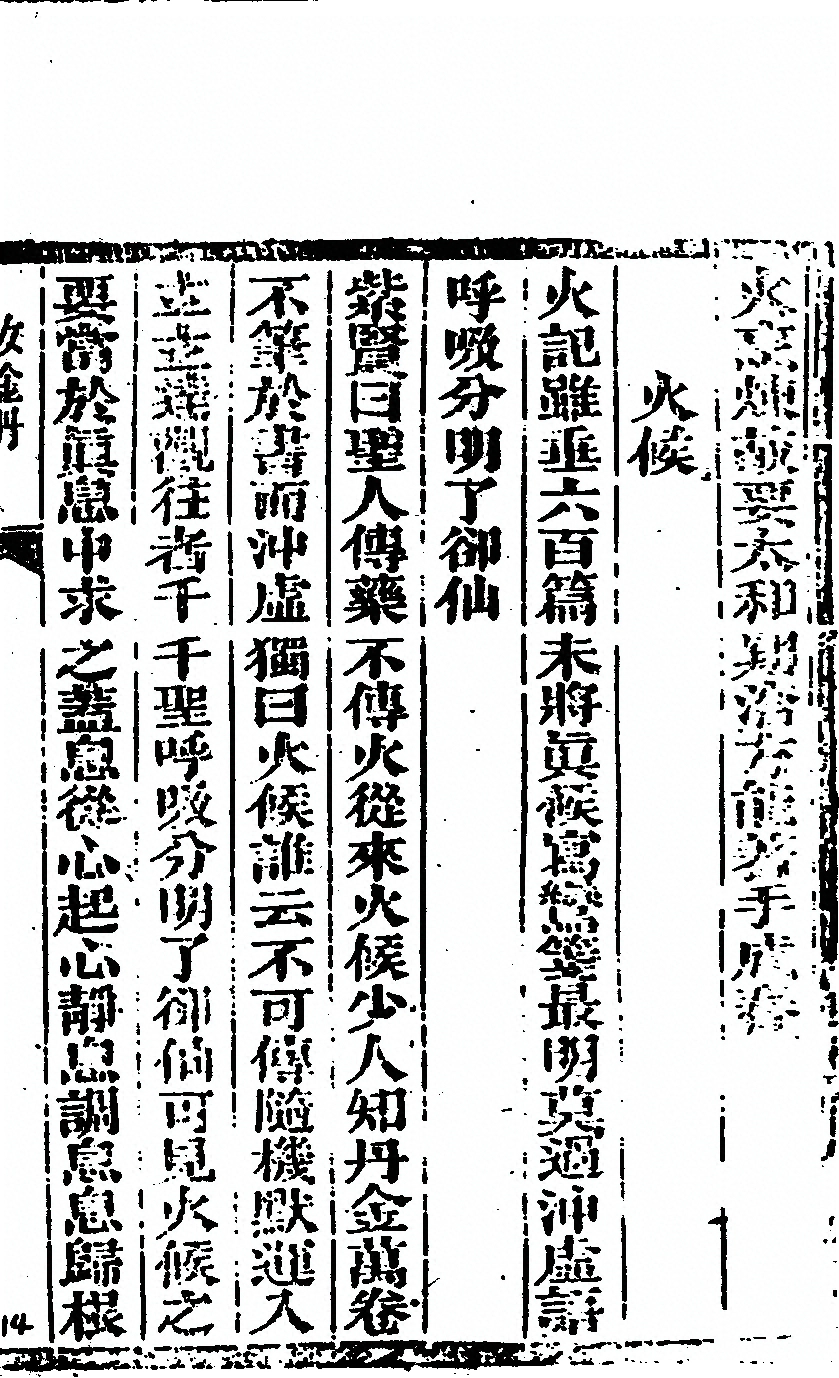 火
要太和
手成
火候
火記雖垂六百篇未將眞候寓鸞箋最明莫過沖虛語
呼吸分明了卻仙
紫賢曰聖人傳藥不傳火從來火候少人知丹金萬卷
不筆於書而沖虛獨曰火候誰云不可傳隨機默運入
往者千千聖呼吸分明了卻仙可見火候之
要當於眞息中求之蓋息從心起心靜息調息息歸根
金丹
14